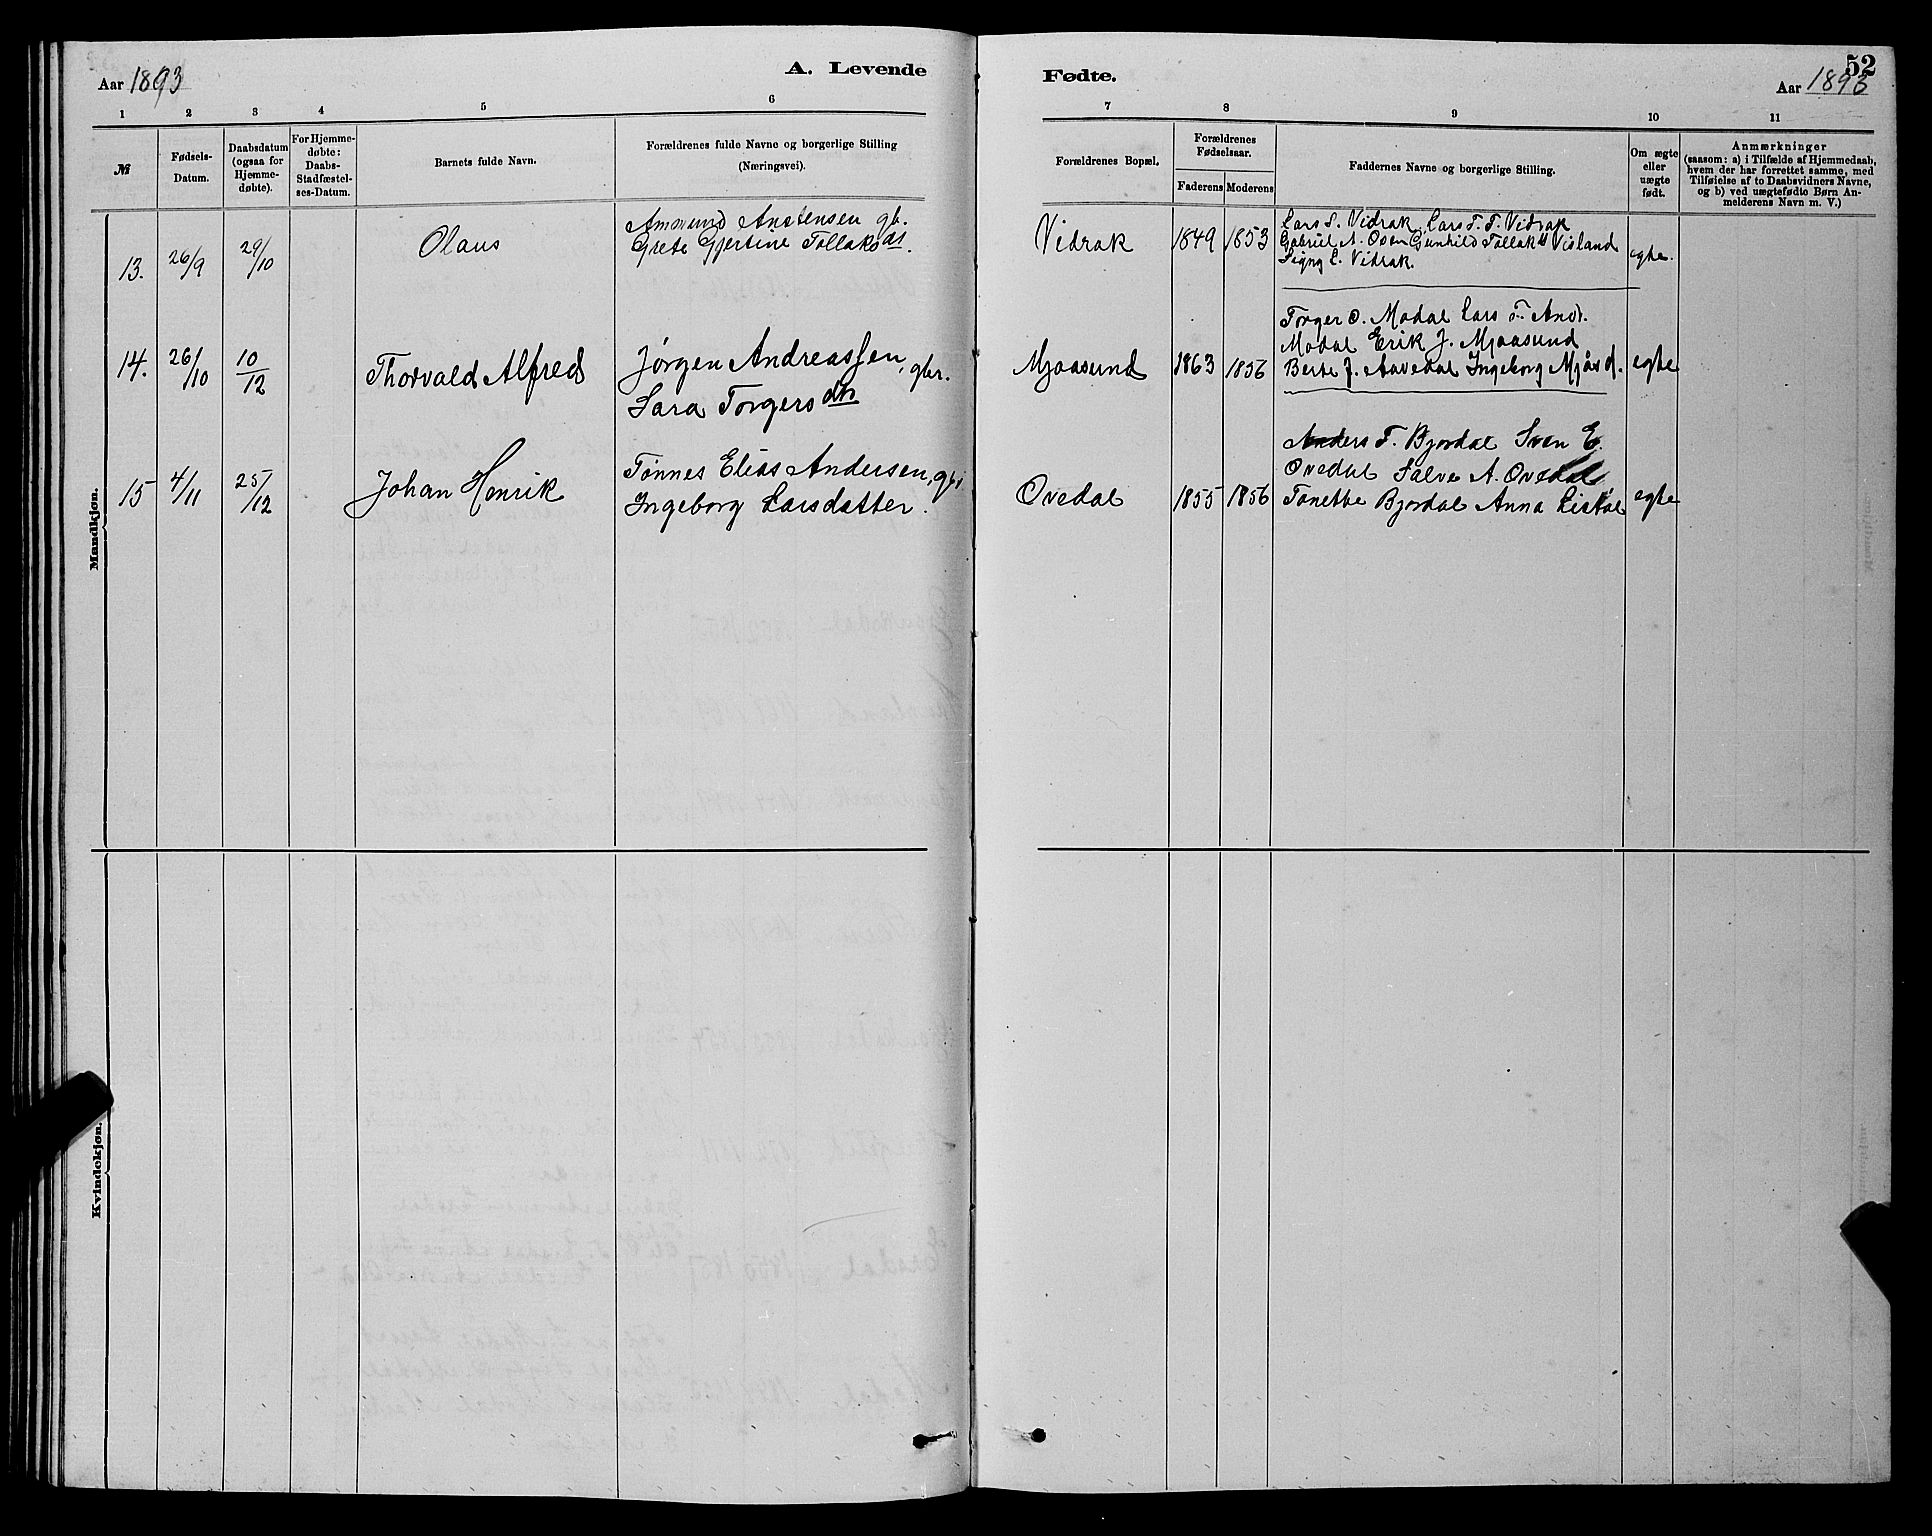 Aar 1893
A. Levende
Fødte.
52
Aar 1893
1 2 3 4 5 6 7 8 9 10 11
№
Fødsels-
Datum.
Daabsdatum
(ogsaa for
Hjemme-
døbte).
For Hjemme-
døbte:
Daabs-
Stadfæstel-
ses-Datum.
Barnets fulde Navn.
Forældrenes fulde Navne og borgerlige Stilling
(Næringsvei).
Forældrenes Bopæl.
Forældrenes
Fødselsaar.
Faderens Moderens
Faddernes Navne og borgerlige Stilling.
Om ægte
eller
uægte
født.
Anmærkninger
(saasom: a) i Tilfælde af Hjemmedaab,
hvem der har forrettet samme, med
Tilføielse af to Daabsvidners Navne,
og b) ved uægtefødte Børn An-
melderens Navn m. V.)
Mandkjøn.
13. 26/9 29/10 Olaus
Ammund Anstensen gbr.
Grete Gjertine Tollaksdt.
Vidrak 1849 1853
Lars S. Vidrak, Lars T. T. Vidrak
Gabriel A. Osen Gunhild Tollaksd Visland
Signy L. Vidrak.
egte.
14. 26/10 10/12 Thorvald Alfred
Jørgen Andreassen, gbr.
Sara Torgersdtr
Mjaasund 1863 1856
Torger O. Modal Lars T. And.
Modal Erik J. Mjaasund
Berte J. Aavedal Ingeborg Mjåsd.
egte
15 4/11 25/12 Johan Henrik
Tønnes Elias Andersen, gbr
Ingeborg Larsdatter.
Ovedal 1855 1856
Anders T. Bjordal Sven E.
Ovedal Salve A. Ovedal
Tonette Bjordal Anna Listøl
egte
Kvindekjøn.